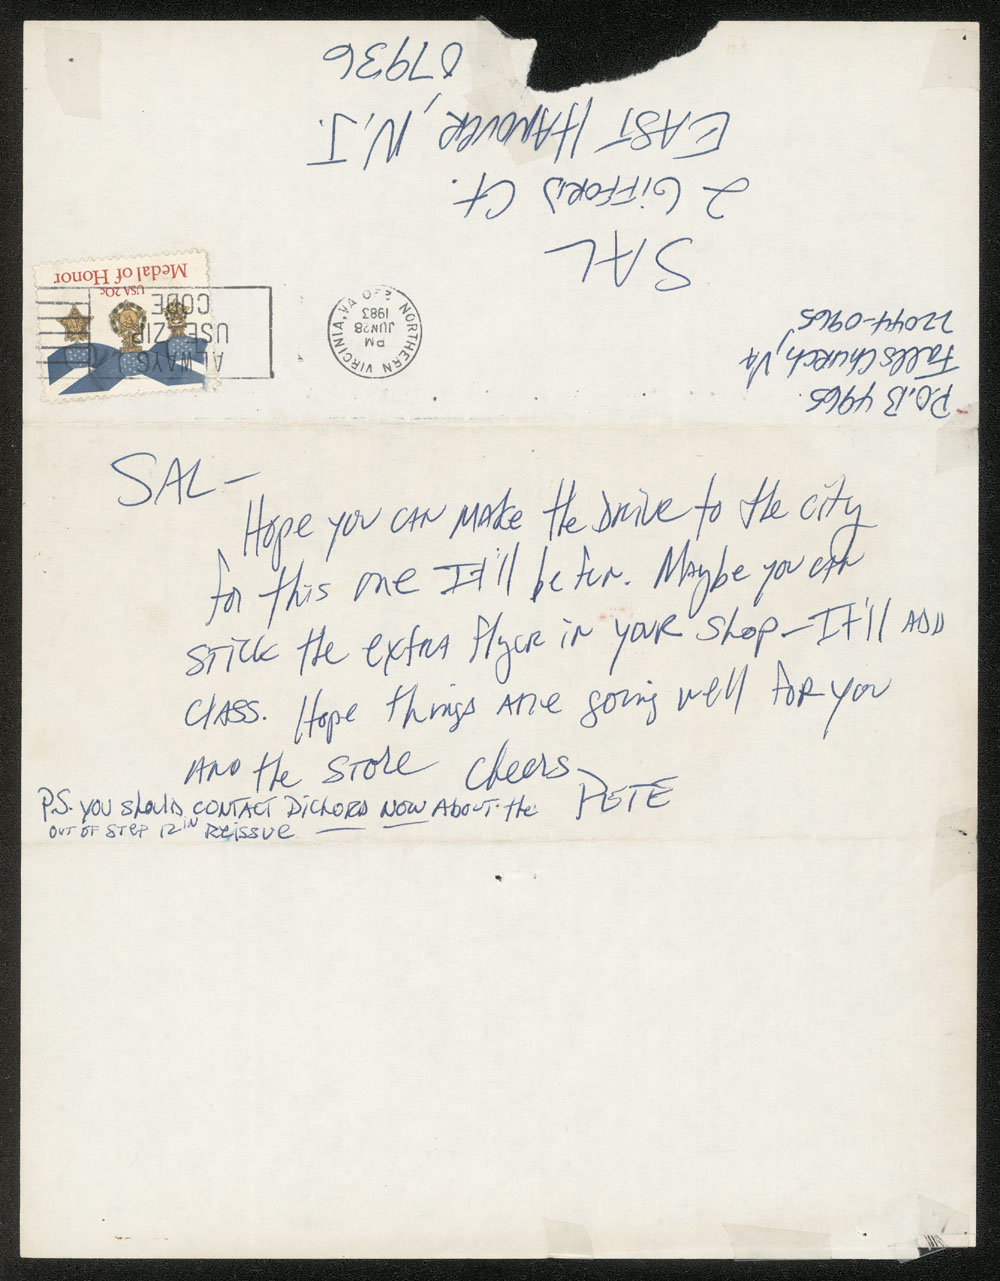 P.O.B 4965
Falls Church, VA
22044-0965
SAL
2 GIFFORD Ct.
EAST HANOVER, N.J.
07936
NORTHERN VIRGINIA, VA
PM
JUN 28
1983
ALWAYS
USE ZIP
CODE
USA 20c
Medal of Honor
SAL—
Hope you CAN MAKE the DRIVE to the city
for this one It'll be fun. Maybe you CAN
STICK the extra flyer in your shop—It'll ADD
CLASS. Hope things ARE going well FOR you
AND the STORE Cheers
PETE
P.S. YOU ShoulD CONTACT DICHORD NOW About the
OUT OF STEP 12 IN REISSUE